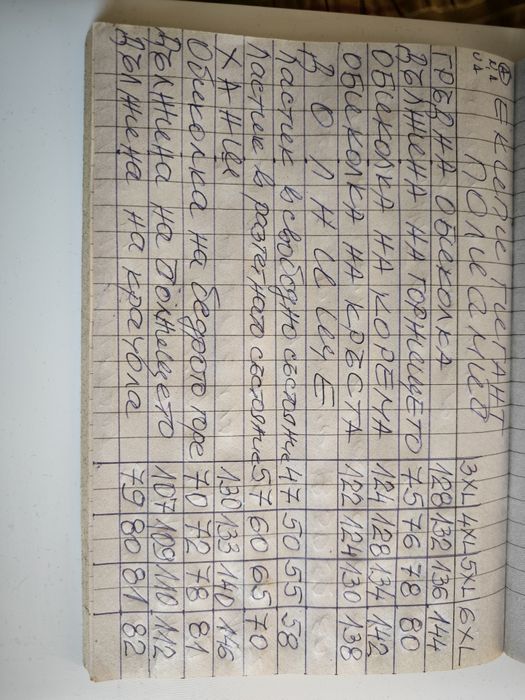 ЕКИПЧЕ ГИГАНТ
ПОЛИАМИД
3XL 4XL 5XL 6XL
ГРЪДНА ОБИКОЛКА 128 132 136 144
ДЪЛЖЕНА НА ГОРНИЩЕТО 75 76 78 80
ОБИКОЛКА НА КОРЕМА 124 128 134 142
ОБИКОЛКА НА КРЪСТА 122 124 130 138
ДОЛНИЩЕ
Ластик в свободно състояние 47 50 55 58
Ластик в разтегнато състояние 57 60 65 70
ХАНШ 130 133 140 146
Обиколка на бедрото горе 70 72 78 81
Дължена на долнището 107 109 110 112
Дължена на крачола 79 80 81 82